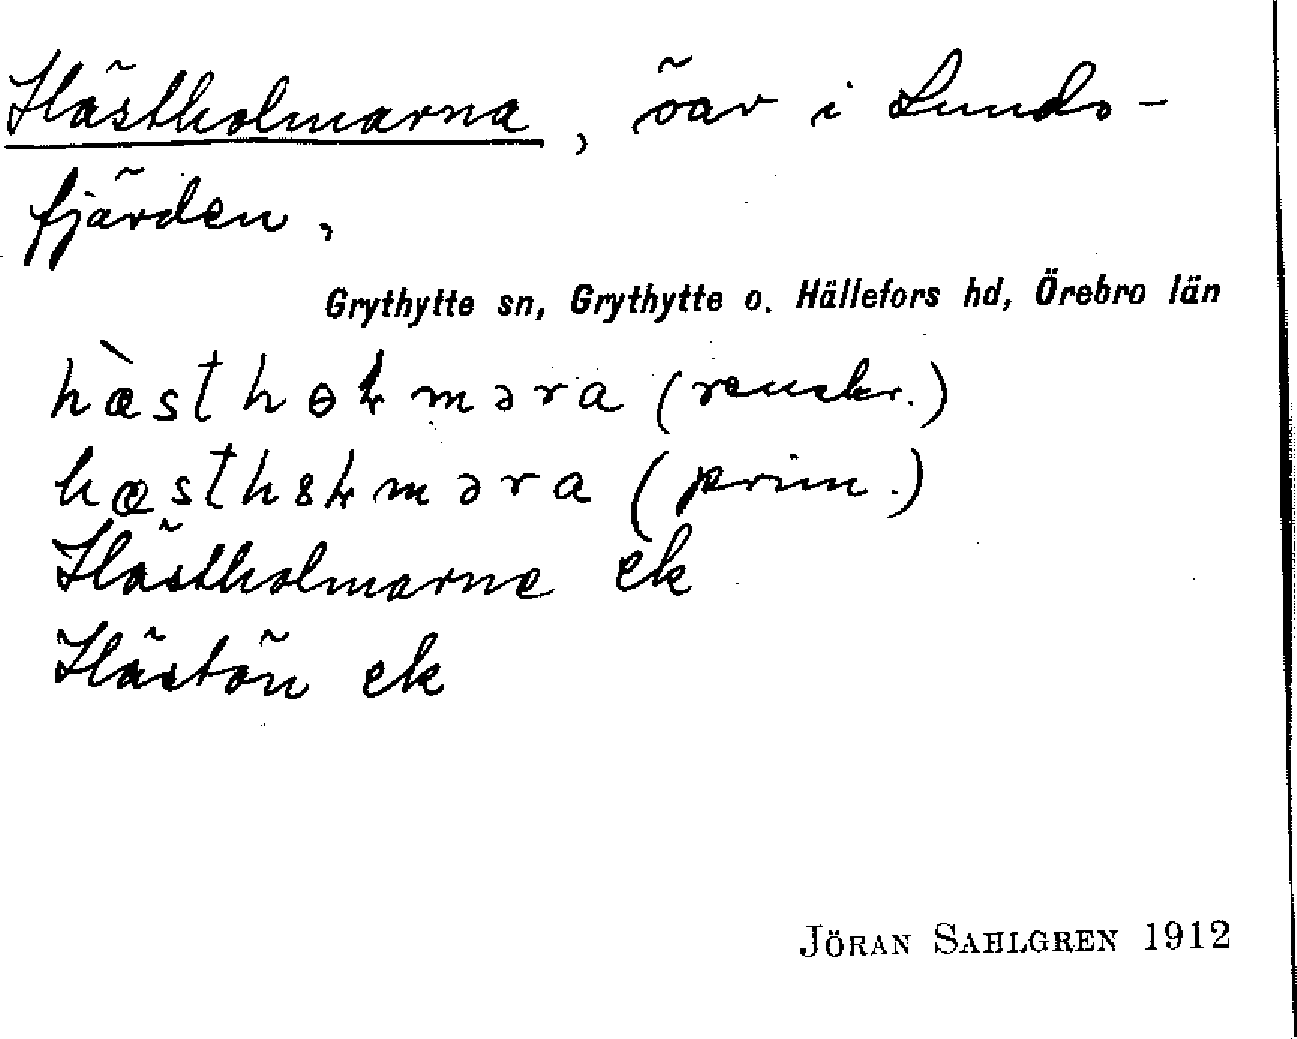 Hästholmarna, öar i Lunds-
fjärden,
Grythytte sn, Grythytte o. Hällefors hd, Örebro län
hæ̀sthɵɫməra (renskr.)
hæsth8ɫməra (prim.)
Hästholmarne ek
Hästön ek
JÖRAN SAHLGREN 1912